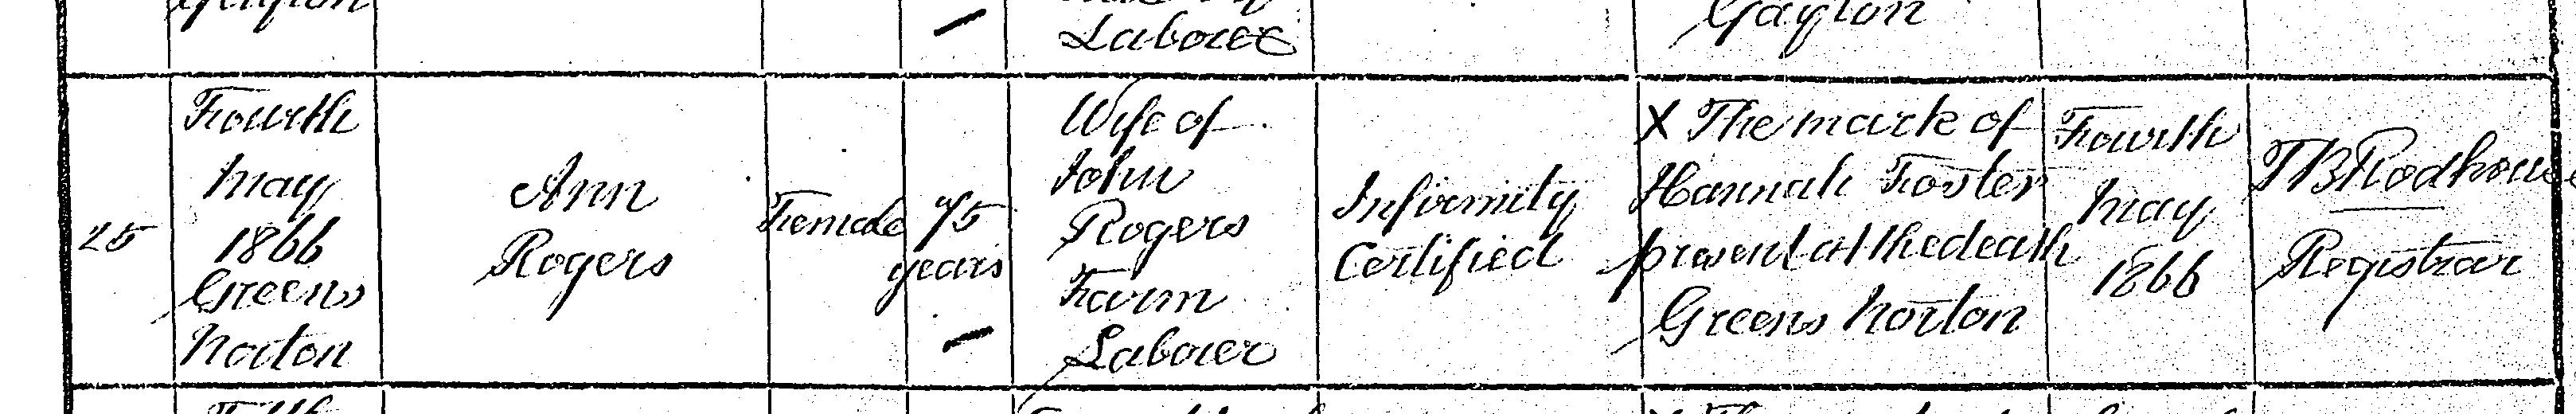 Labourer
Gayton
25
Fourth
May
1866
Greens
Norton
Ann
Rogers
Female
75
years
Wife of
John
Rogers
Farm
Labourer
Infirmity
Certified
X The mark of
Hannah Foster
present at the death
Greens Norton
Fourth
May
1866
TB Rodhouse
Registrar